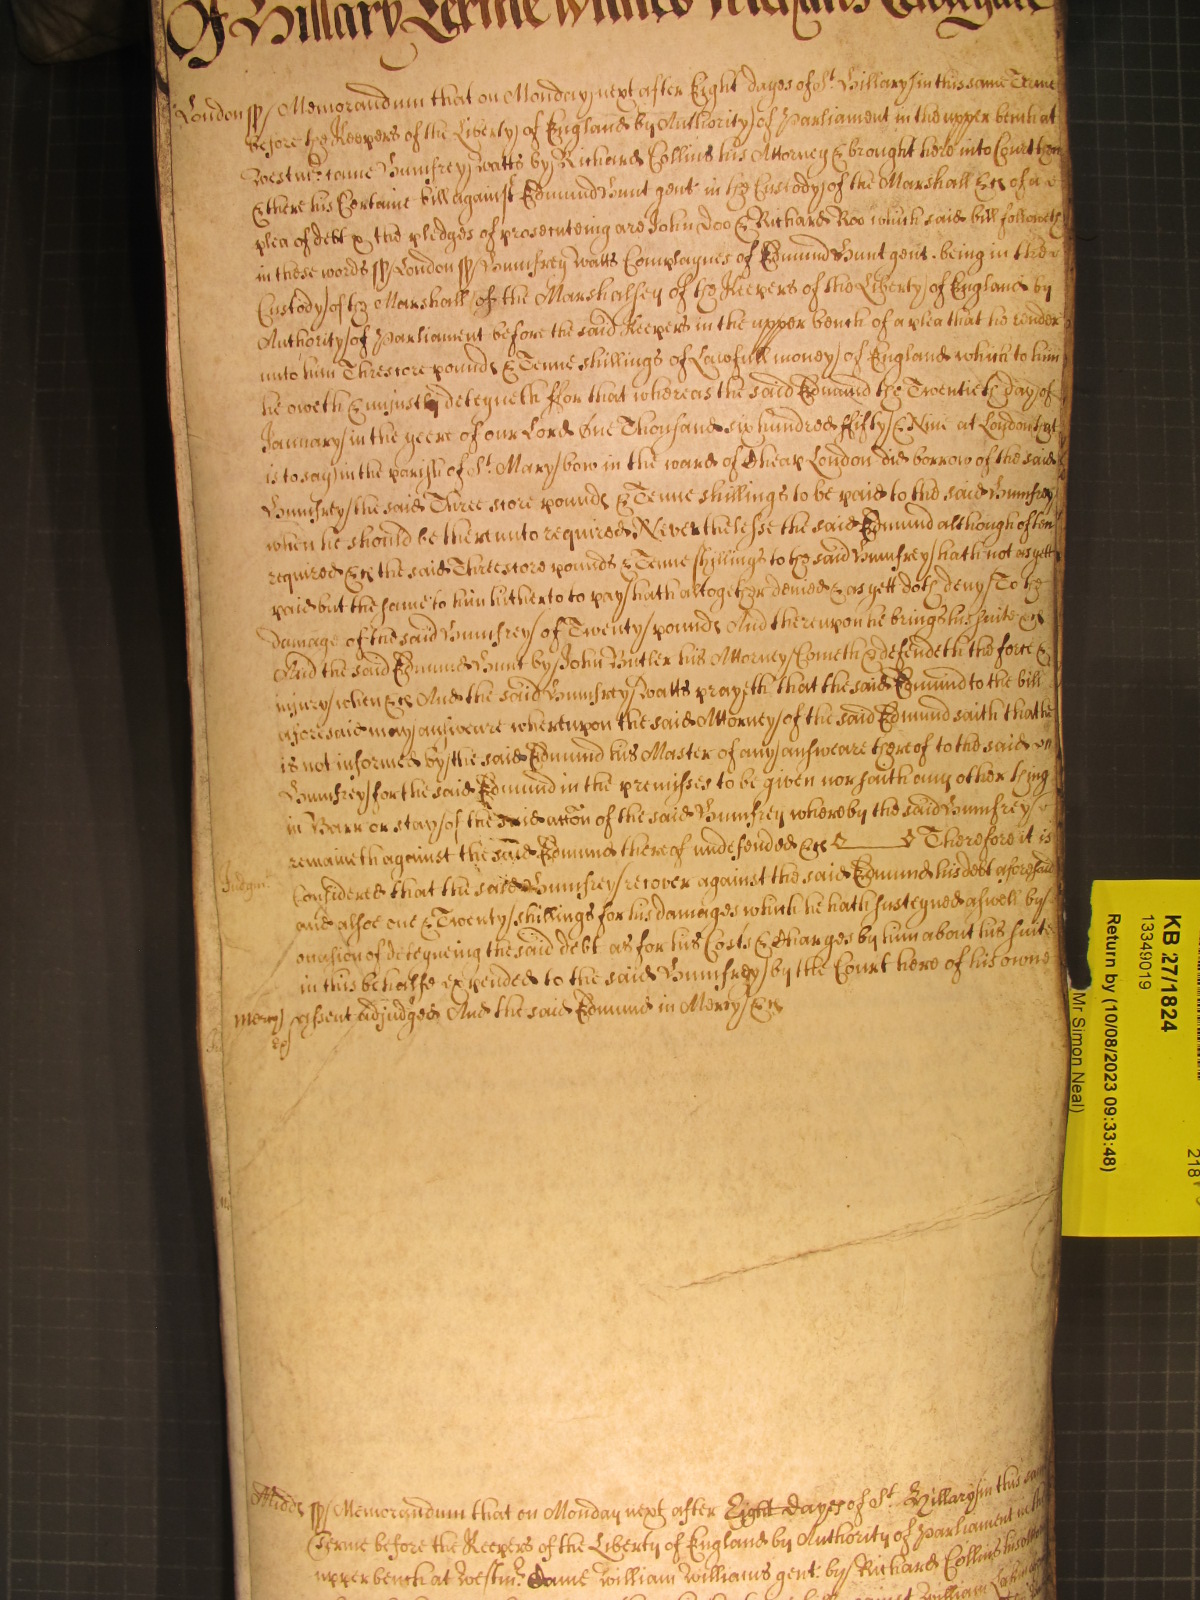 Of Hillary Terme
London ss/ Memorandum that on Monday next after Eight dayes of St. Hillary in this same Terme
before the Keepers of the Liberty of England by Authority of Parliament in the upper bench at
Westmr. came Humfrey Watts by Richard Collins his Attorney & brought here into Court then
& there his Certaine bill against Edmund Hunt gent. in the Custody of the Marshall &c of a
plea of debt & the pledges of prosecuteing are John Doo & Richard Roo which said bill followeth
in these words ss/ London ss/ Humfrey Watts Complaynes of Edmund Hunt gent. being in the
Custody of the Marshall of the Marshalsey of the Keepers of the Liberty of England by
Authority of Parliament before the said Keepers in the upper bench of a plea that he render
unto him Threscore pounds & Tenne shillings of Lawfull money of England which to him
he oweth & unjustly deteyneth ffor that whereas the said Edmund the Twentieth day of
January in the yeere of our Lord One Thousand six hundred ffifty & Nine at London that
is to say in the parish of St. Mary bow in the ward of Cheap London did borrow of the said
Humfrey the said Three score pounds & Tenne shillings to be paid to the said Humfrey
when he should be thereunto required Neverthelesse the said Edmund although often
required &c the said Threescore pounds & Tenne shillings to the said Humfrey hath not as yett
paid but the same to him hitherto to pay hath altogether denied & as yett doth deny To the
damage of the said Humfrey of Twenty pounds And thereupon he brings his suite &c
And the said Edmund Hunt by John Butler his Attorney Cometh & defendeth the force &
injury when &c And the said Humfrey Watts prayeth that the said Edmund to the bill
aforesaid may answeare whereupon the said Attorney of the said Edmund saith that he
is not informed by the said Edmund his Master of any answeare thereof to the said
Humfrey for the said Edmund in the premisses to be given nor saith any other thing
in Barr or stay of the said accon of the said Humfrey whereby the said Humfrey
remaineth against the said Edmund thereof undefended &c Therefore it is
Judgmt. Considered that the said Humfrey recover against the said Edmund his debt aforesaid
and alsoe one & Twenty shillings for his damages which he hath susteyned aswell by
occasion of deteyneing the said debt as for his Costs & Charges by him about his suite
in this behalfe expended to the said Humfrey by the Court here of his owne
Mercy assent adjudged And the said Edmund in Mercy &c
Midds ss/ Memorandum that on Monday next after Eight dayes of St. Hillary in this same
Terme before the Keepers of the Liberty of England by Authority of Parliament in the
upper bench at Westmr. Came William Williams gent. by Richard Collins his
William
KB 27/1824
13349019
Return by (10/08/2023 09:33:48)
Mr Simon Neal)
218